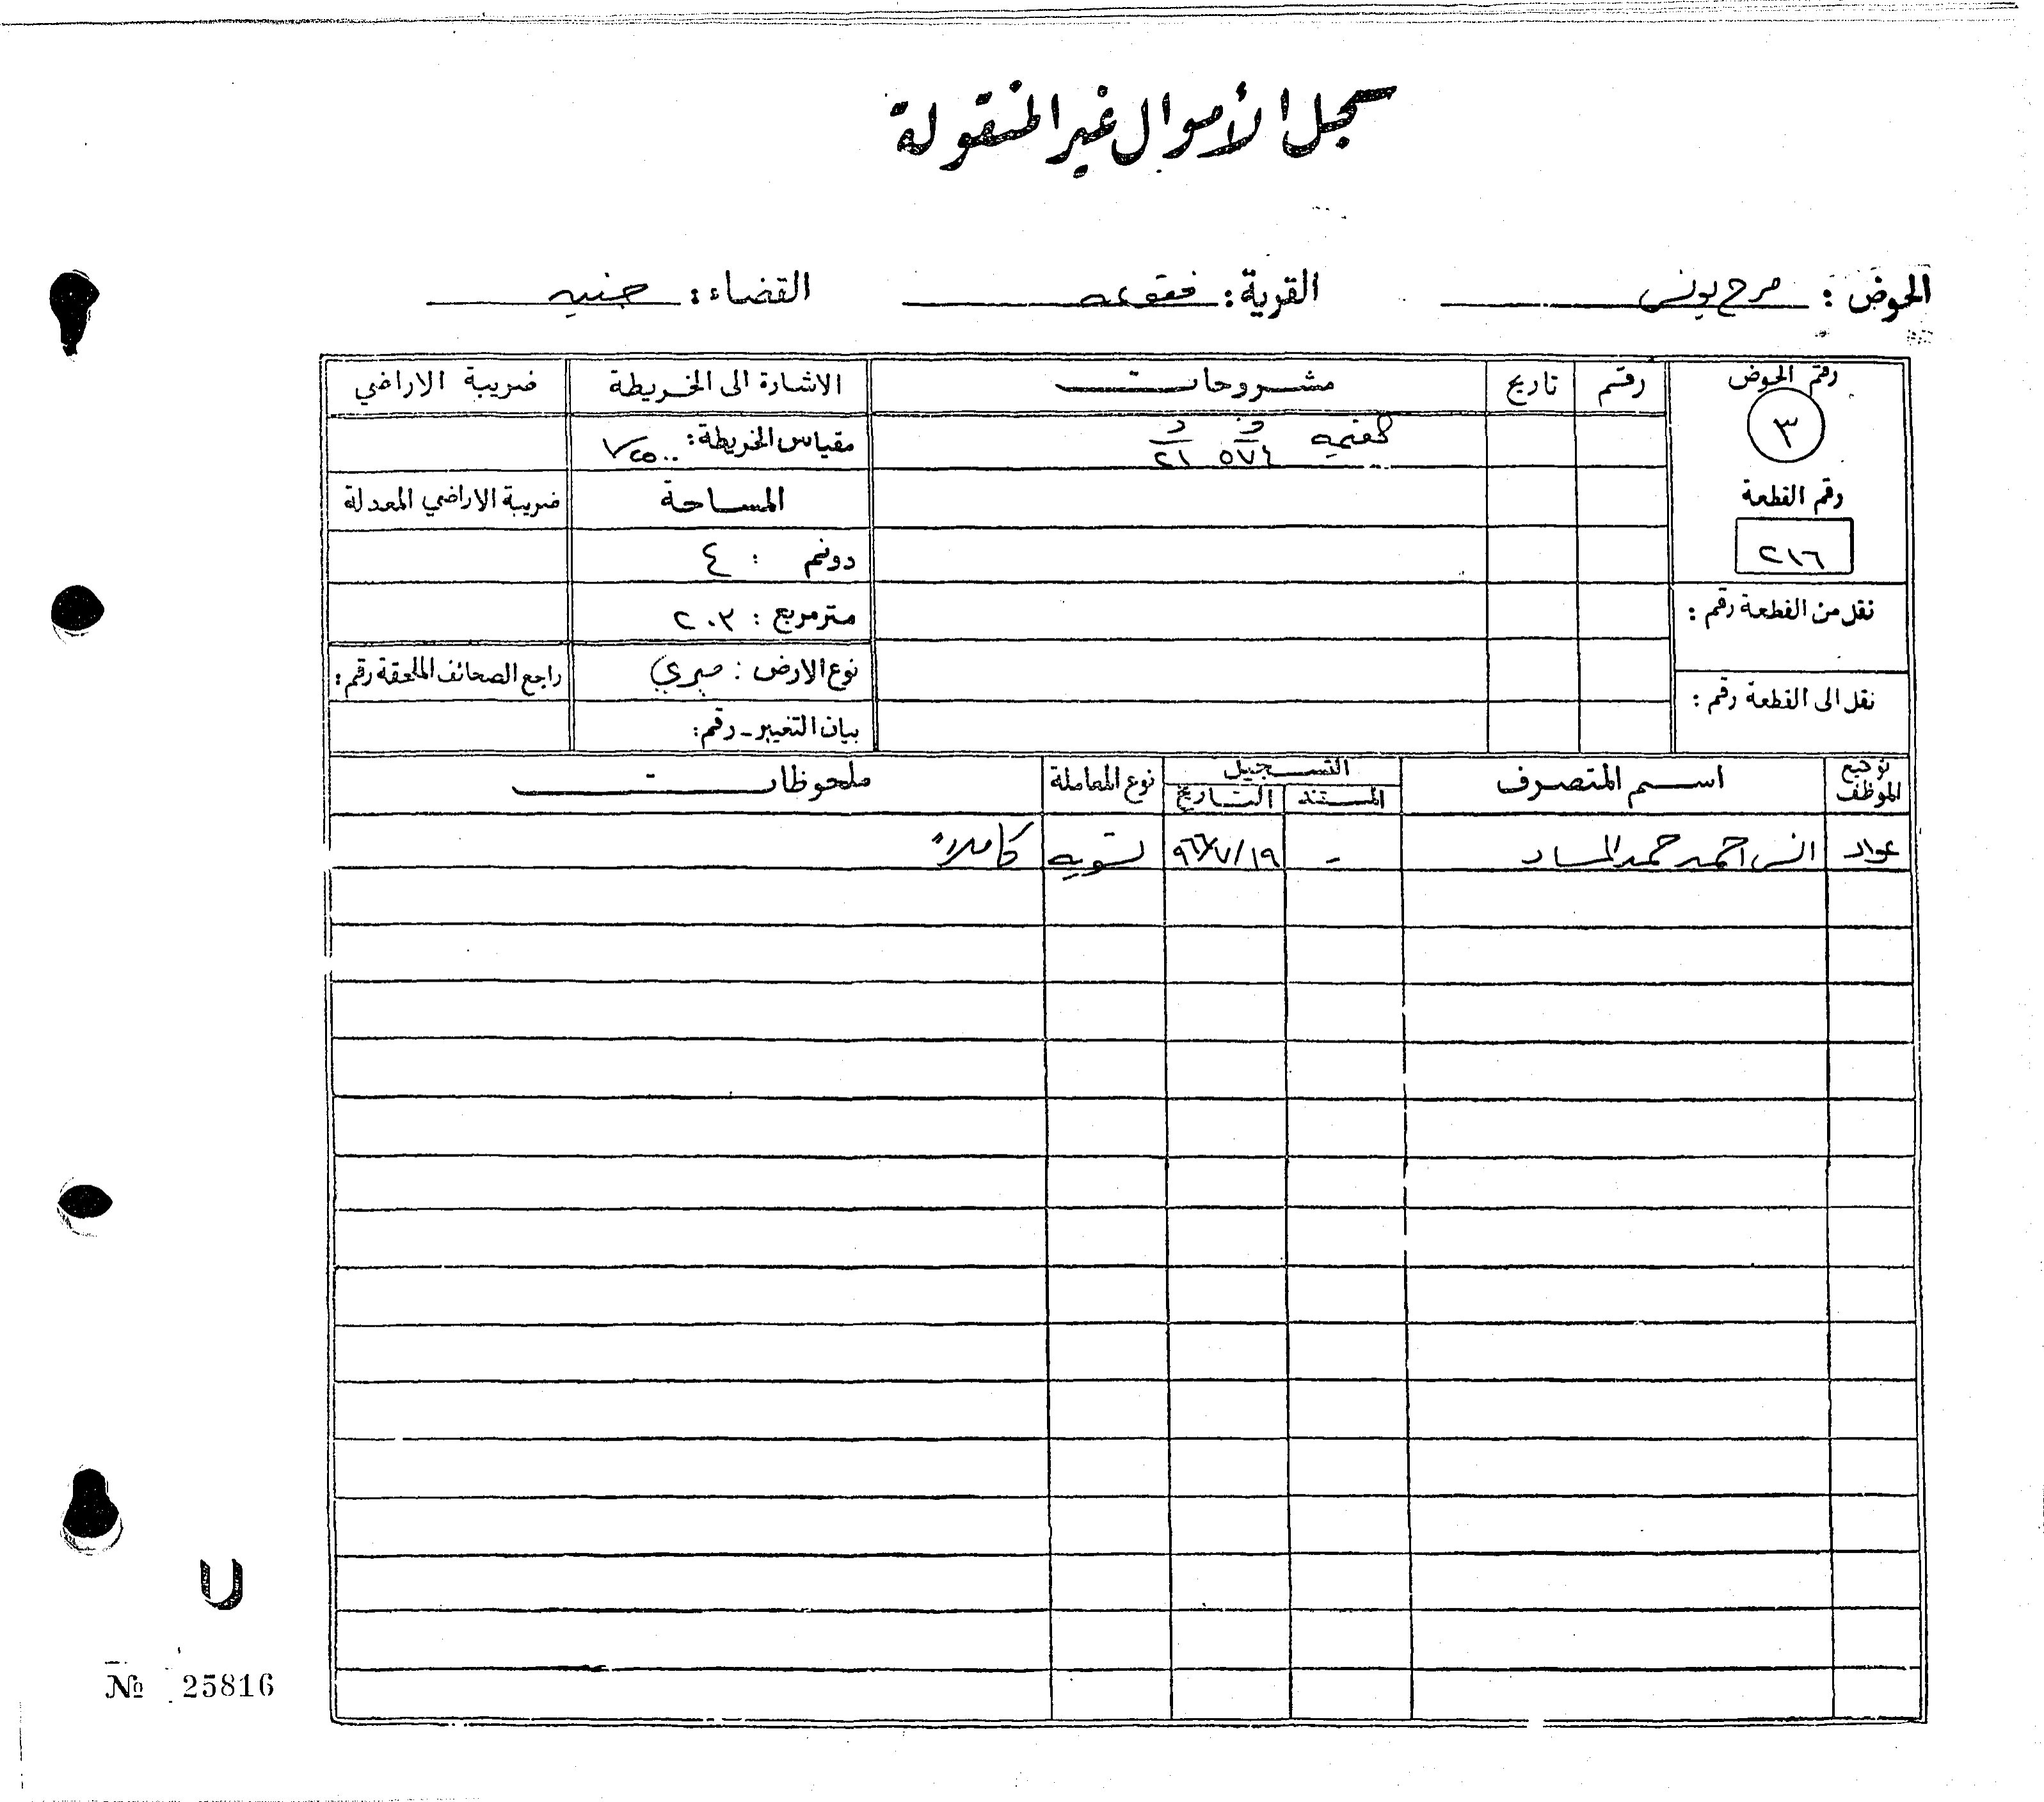 سجل الأموال غير المنقولة
الحوض : مرج يونس القرية : فقوعه القضاء : جنين
رقم الحوض رقم تاريخ مشروحات الاشارة الى الخريطة ضريبة الاراضي
٣ د ٥٧٤ د ٢١ مقياس الخريطة : ١/٢٥٠٠
رقم القطعة المساحة ضريبة الاراضي المعدلة
٢١٦ دونم : ٤
نقل من القطعة رقم : متر مربع : ٢٠٣
نوع الارض : ميري راجع الصحائف الملحقة رقم :
نقل الى القطعة رقم : بيان التغيير - رقم :
توقيع الموظف اسم المتصرف التسجيل نوع المعاملة ملحوظات
المستند التاريخ
عواد انس احمد حمد المساد - ١٩/٧/٩٦ تسويه كاملاً
U
№ 25816